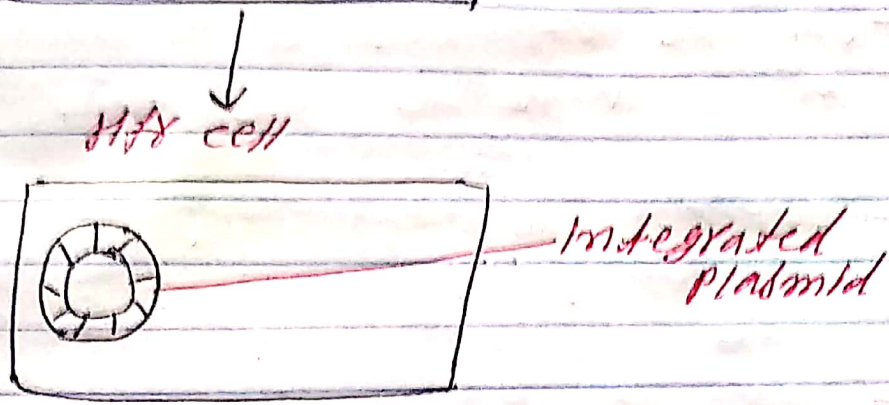 Hfr cell
Integrated
Plasmid